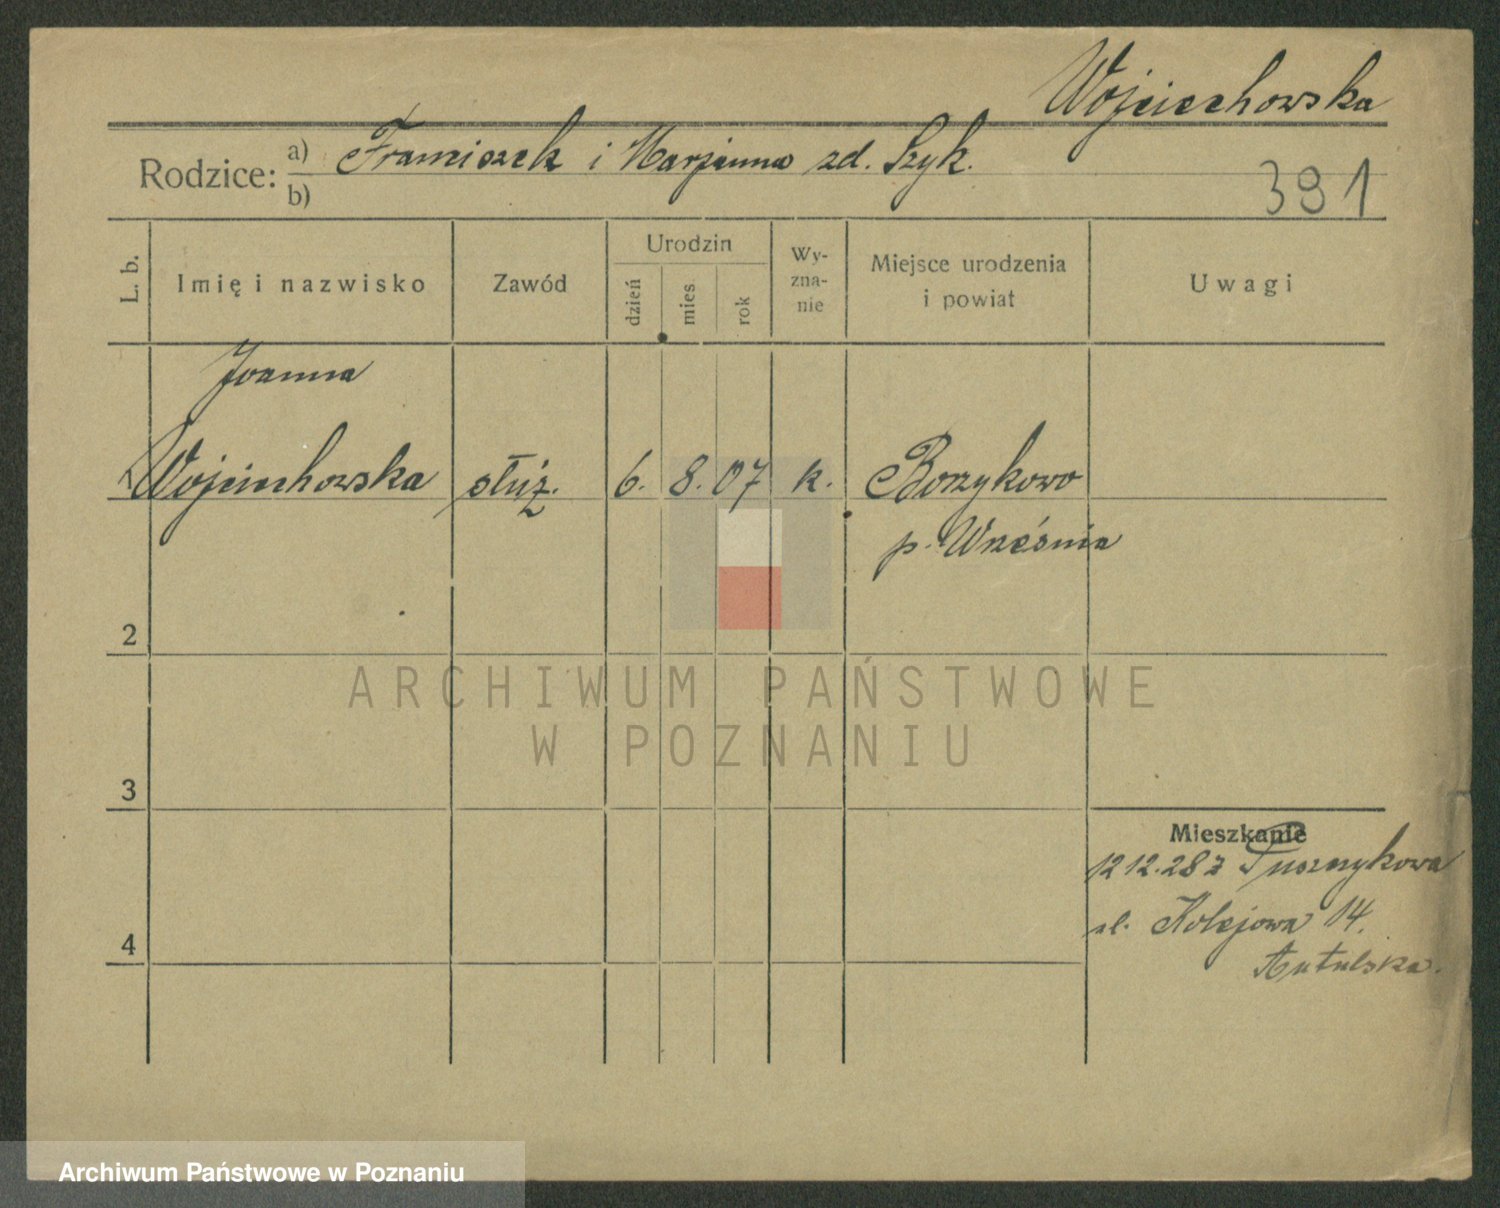 Wojciechowska
Rodzice: a) Franciszek i Marjanna zd. Szyk.
b)
391
L. b.
Imię i nazwisko
Zawód
Urodzin
dzień
mies
rok
Wy-
zna-
nie
Miejsce urodzenia
i powiat
Uwagi
Joanna
1 Wojciechowska służ. 6. 8. 07 k. Borzykowo
p. Września
2
ARCHIWUM PAŃSTWOWE
W POZNANIU
3
Mieszkanie
12 12.28 z Puszczykowa
ul. Kolejowa 14.
4
Archiwum Państwowe w Poznaniu